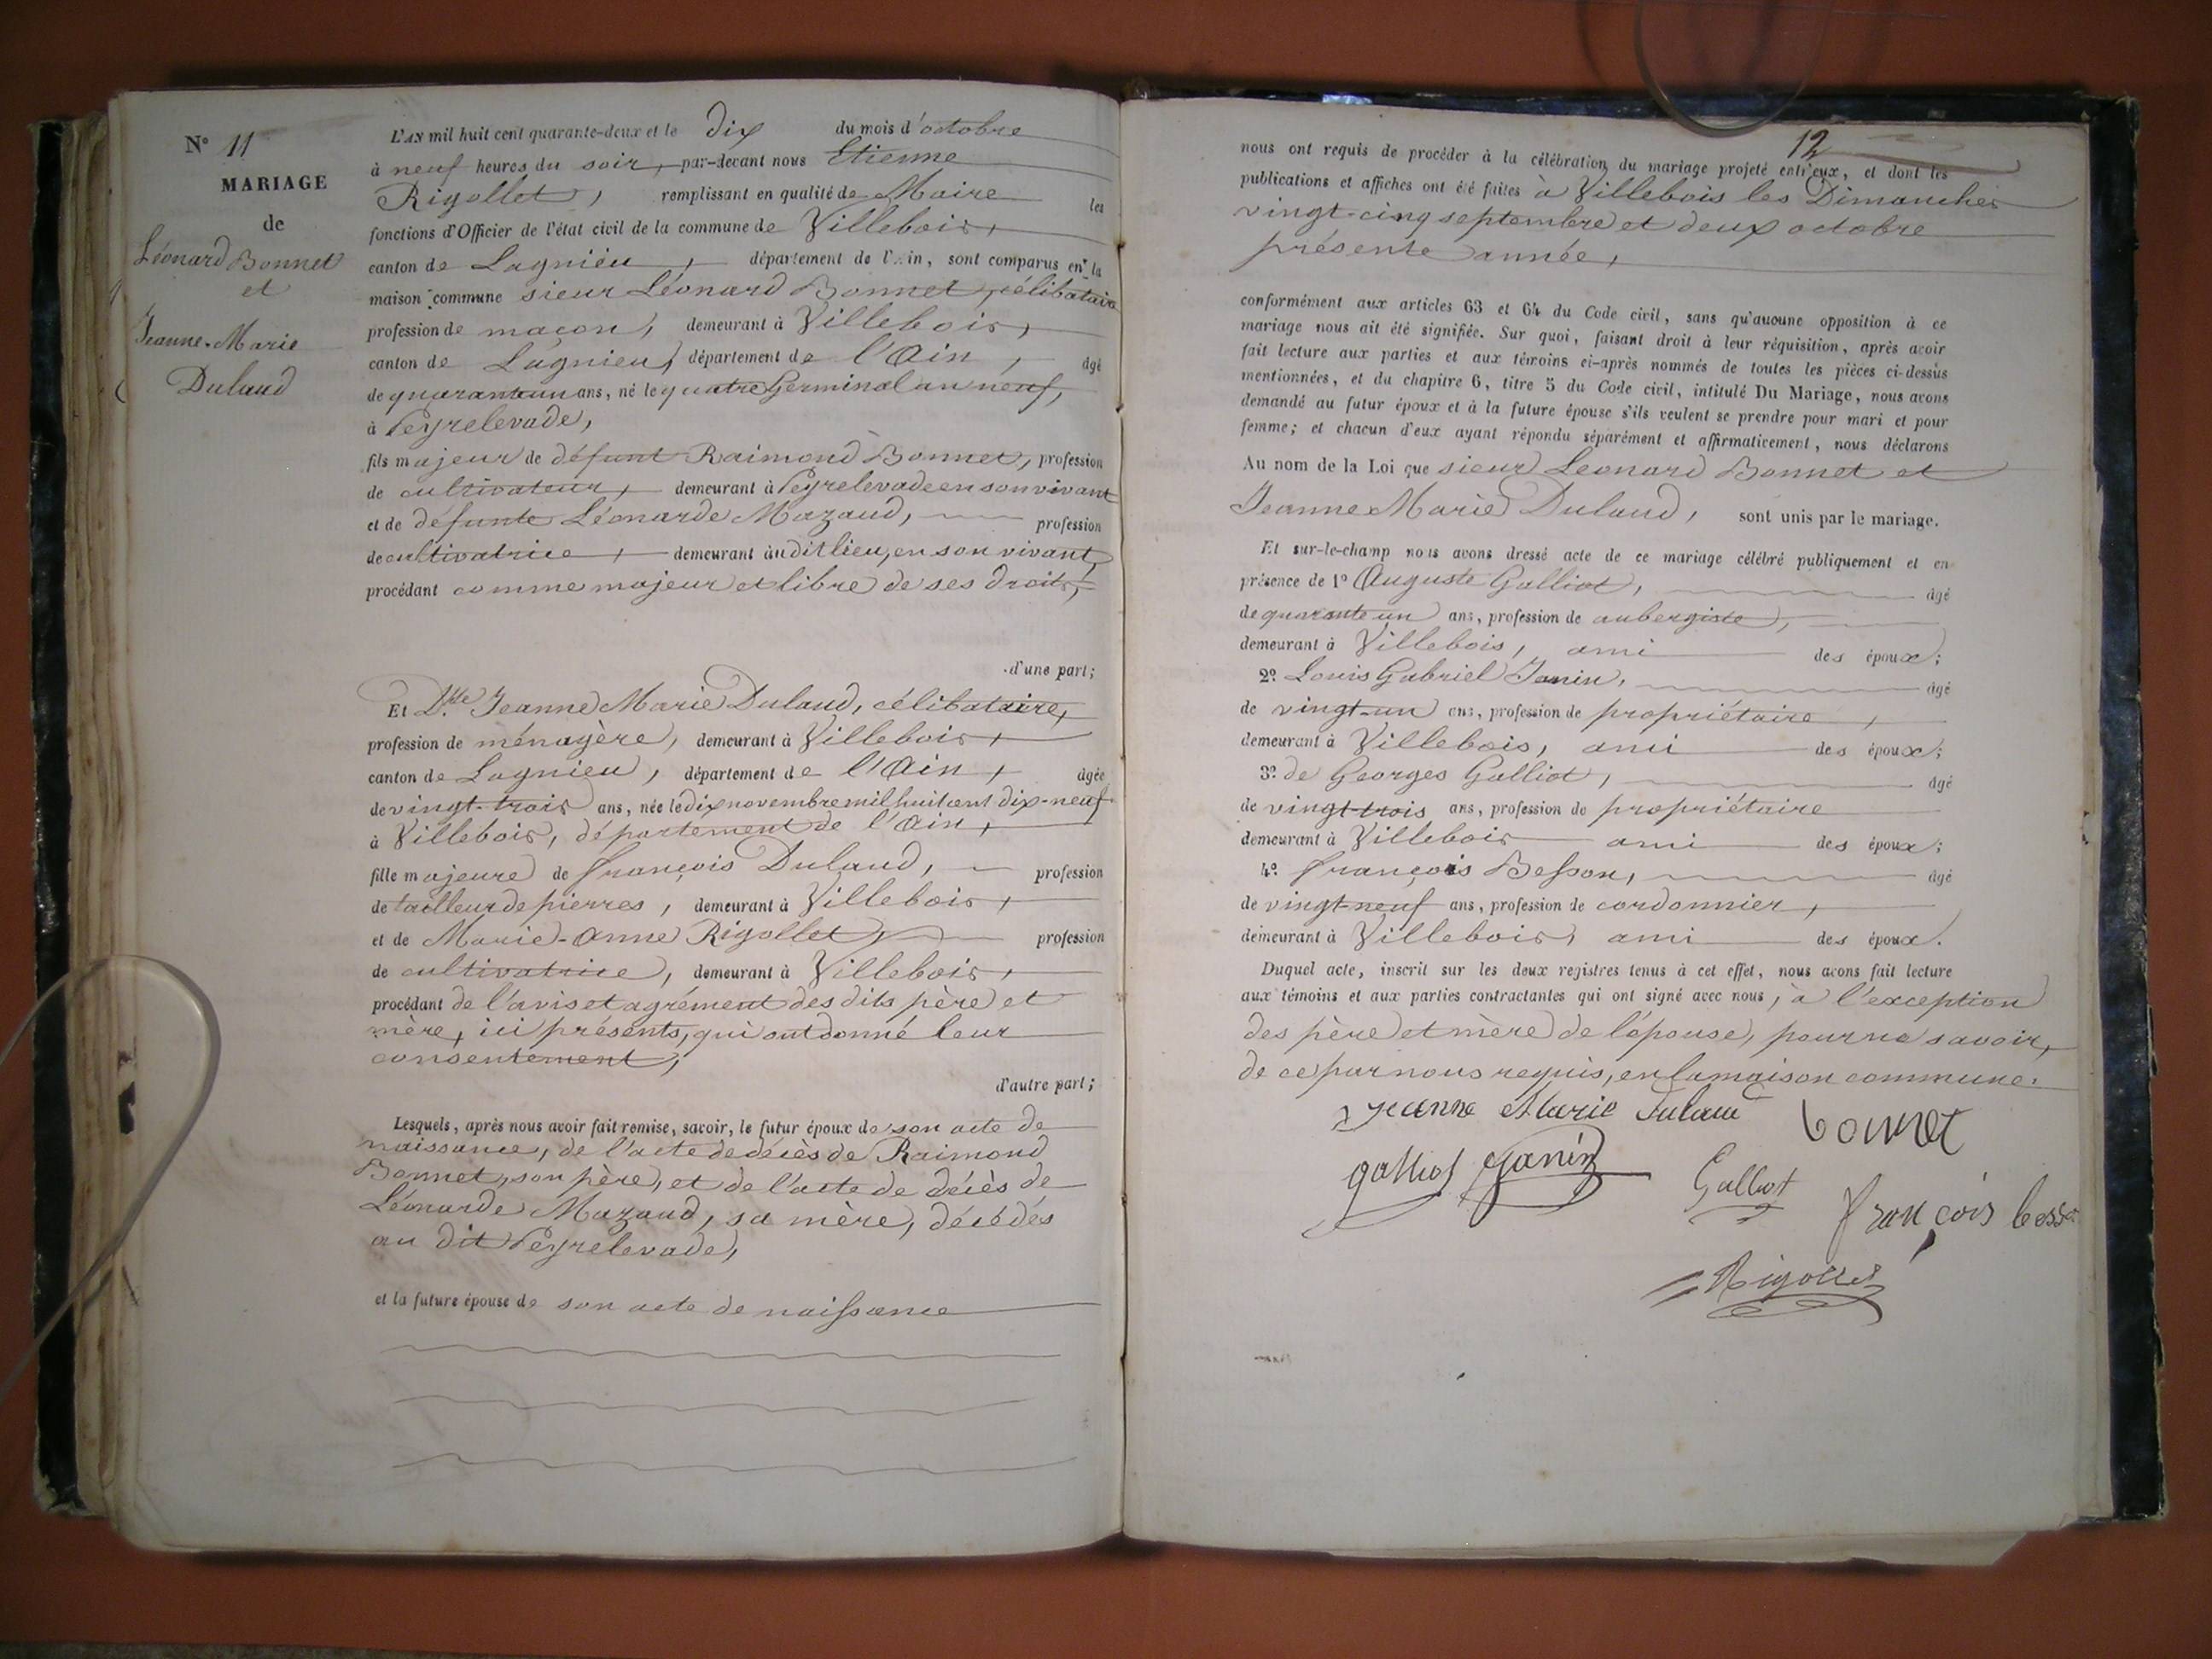 N° 11
MARIAGE
de
Léonard Bonnet
et
Jeanne-Marie
Dulaud
L'AN mil huit cent quarante-deux et le dix du mois d'octobre
à neuf heures du soir, par-devant nous Etienne
Rigollet, remplissant en qualité de Maire les
fonctions d'Officier de l'état civil de la commune de Villebois,
canton de Lagnieu, département de l'Ain, sont comparus en la
maison commune sieur Léonard Bonnet, célibataire
profession de maçon, demeurant à Villebois,
canton de Lagnieu, département de l'Ain, âgé
de quarante un ans, né le quatre Germinal an neuf,
à Peyrelevade,
fils majeur de défunt Raimond Bonnet, profession
de cultivateur, demeurant à Peyrelevade en son vivant
et de défunte Léonarde Mazaud, profession
de cultivatrice, demeurant audit lieu, en son vivant,
procédant comme majeur et libre de ses droits,
d'une part;
Et Dlle Jeanne Marie Dulaud, célibataire,
profession de ménagère, demeurant à Villebois,
canton de Lagnieu, département de l'Ain, âgée
de vingt-trois ans, née le dix novembre mil huit cent dix-neuf
à Villebois, département de l'Ain,
fille majeure de françois Dulaud, profession
de tailleur de pierres, demeurant à Villebois,
et de Marie-Anne Rigollet, profession
de cultivatrice, demeurant à Villebois,
procédant de l'avis et agrément des dits père et
mère, ici présents, qui ont donné leur
consentement,
d'autre part;
Lesquels, après nous avoir fait remise, savoir, le futur époux de son acte de
naissance, de l'acte de décès de Raimond
Bonnet, son père, et de l'acte de décès de
Léonarde Mazaud, sa mère, décédés
au dit Peyrelevade,
et la future épouse de son acte de naissance
12
nous ont requis de procéder à la célébration du mariage projeté entr'eux, et dont les
publications et affiches ont été faites à Villebois les Dimanches
vingt-cinq septembre et deux octobre
présente année,
conformément aux articles 63 et 64 du Code civil, sans qu'aucune opposition à ce
mariage nous ait été signifiée. Sur quoi, faisant droit à leur réquisition, après avoir
fait lecture aux parties et aux témoins ci-après nommés de toutes les pièces ci-dessus
mentionnées, et du chapitre 6, titre 5 du Code civil, intitulé Du Mariage, nous avons
demandé au futur époux et à la future épouse s'ils veulent se prendre pour mari et pour
femme; et chacun d'eux ayant répondu séparément et affirmativement, nous déclarons
Au nom de la Loi que sieur Leonard Bonnet et
Jeanne Marie Dulaud, sont unis par le mariage.
Et sur-le-champ nous avons dressé acte de ce mariage célébré publiquement et en
présence de 1° Auguste Galliot, âgé
de quarante un ans, profession de aubergiste,
demeurant à Villebois, ami des époux;
2° Louis Gabriel Janin, âgé
de vingt-un ans, profession de propriétaire,
demeurant à Villebois, ami des époux;
3° de Georges Galliot, âgé
de vingt-trois ans, profession de propriétaire
demeurant à Villebois ami des époux;
4° françois Besson, âgé
de vingt-neuf ans, profession de cordonnier,
demeurant à Villebois, ami des époux.
Duquel acte, inscrit sur les deux registres tenus à cet effet, nous avons fait lecture
aux témoins et aux parties contractantes qui ont signé avec nous, à l'exception
des père et mère de l'épouse, pour ne savoir,
de ce par nous requis, en la maison commune.
Jeanne Marie Dulaud bonnet
galliot Janin Galliot françois besson
Rigollet